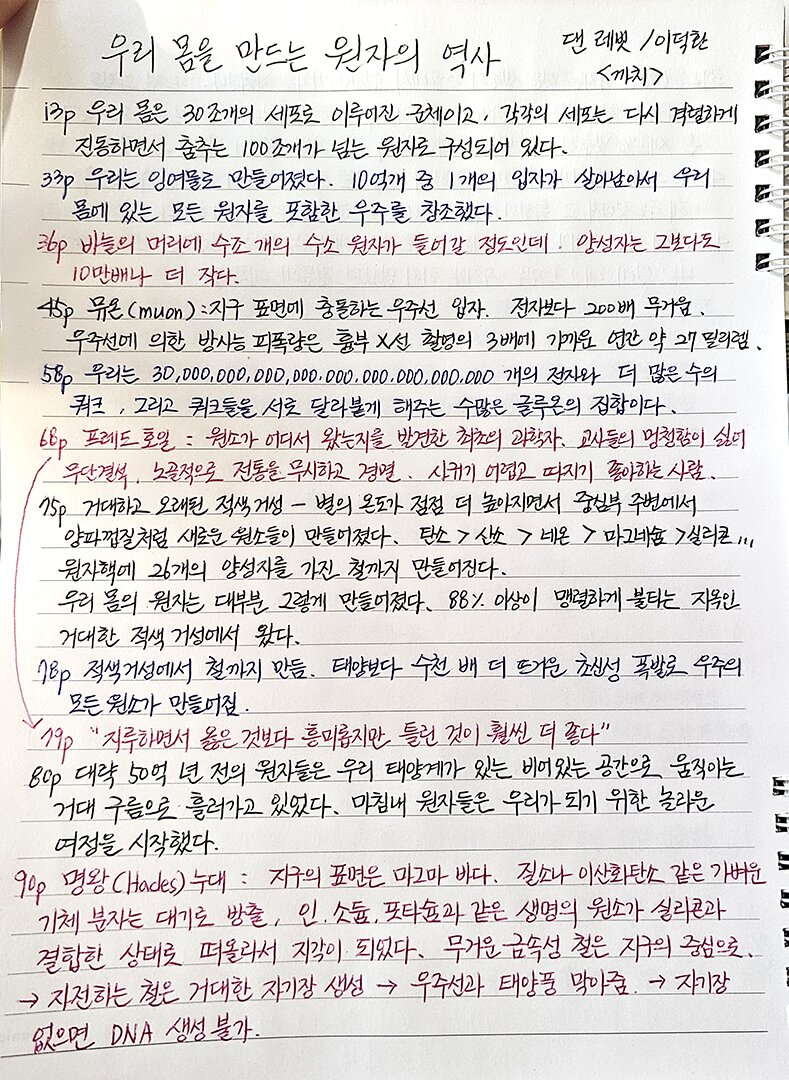 우리 몸을 만드는 원자의 역사
댄 레빗 / 이덕환
<까치>
13p 우리 몸은 30조개의 세포로 이루어진 군체이고, 각각의 세포는 다시 격렬하게
진동하면서 춤추는 100조개가 넘는 원자로 구성되어 있다.
33p 우리는 잉여물로 만들어졌다. 10억개 중 1개의 입자가 살아남아서 우리
몸에 있는 모든 원자를 포함한 우주를 창조했다.
36p 바늘의 머리에 수조 개의 수소 원자가 들어갈 정도인데, 양성자는 그보다도
10만배나 더 작다.
45p 뮤온(muon) : 지구 표면에 충돌하는 우주선 입자. 전자보다 200배 무거움.
우주선에 의한 방사능 피폭량은 흉부 X선 촬영의 3배에 가까운 연간 약 27 밀리렘.
58p 우리는 30,000,000,000,000.000.000.000.000.000 개의 전자와 더 많은 수의
쿼크, 그리고 쿼크들을 서로 달라붙게 해주는 수많은 글루온의 집합이다.
68p 프레드 호일 = 원소가 어디서 왔는지를 발견한 최초의 과학자. 교사들의 멍청함이 싫어
무단결석. 노골적으로 전통을 무시하고 경멸. 사귀기 어렵고 따지기 좋아하는 사람.
75p 거대하고 오래된 적색거성 - 별의 온도가 점점 더 높아지면서 중심부 주변에서
양파껍질처럼 새로운 원소들이 만들어졌다. 탄소 > 산소 > 네온 > 마그네슘 > 실리콘...
원자핵에 26개의 양성자를 가진 철까지 만들어진다.
우리 몸의 원자는 대부분 그렇게 만들어졌다. 88% 이상이 맹렬하게 불타는 지옥인
거대한 적색 거성에서 왔다.
78p 적색거성에서 철까지 만듦. 태양보다 수천 배 더 뜨거운 초신성 폭발로 우주의
모든 원소가 만들어짐.
79p "지루하면서 옳은 것보다 흥미롭지만 틀린 것이 훨씬 더 좋다"
80p 대략 50억 년 전의 원자들은 우리 태양계가 있는 비어있는 공간으로 움직이는
거대 구름으로 흘러가고 있었다. 마침내 원자들은 우리가 되기 위한 놀라운
여정을 시작했다.
90p 명왕(Hades)누대 : 지구의 표면은 마그마 바다. 질소나 이산화탄소 같은 가벼운
기체 분자는 대기로 방출, 인. 소듐. 포타슘과 같은 생명의 원소가 실리콘과
결합한 상태로 떠올라서 지각이 되었다. 무거운 금속성 철은 지구의 중심으로.
→ 자전하는 철은 거대한 자기장 생성 → 우주선과 태양풍 막아줌. → 자기장
없으면 DNA 생성 불가.